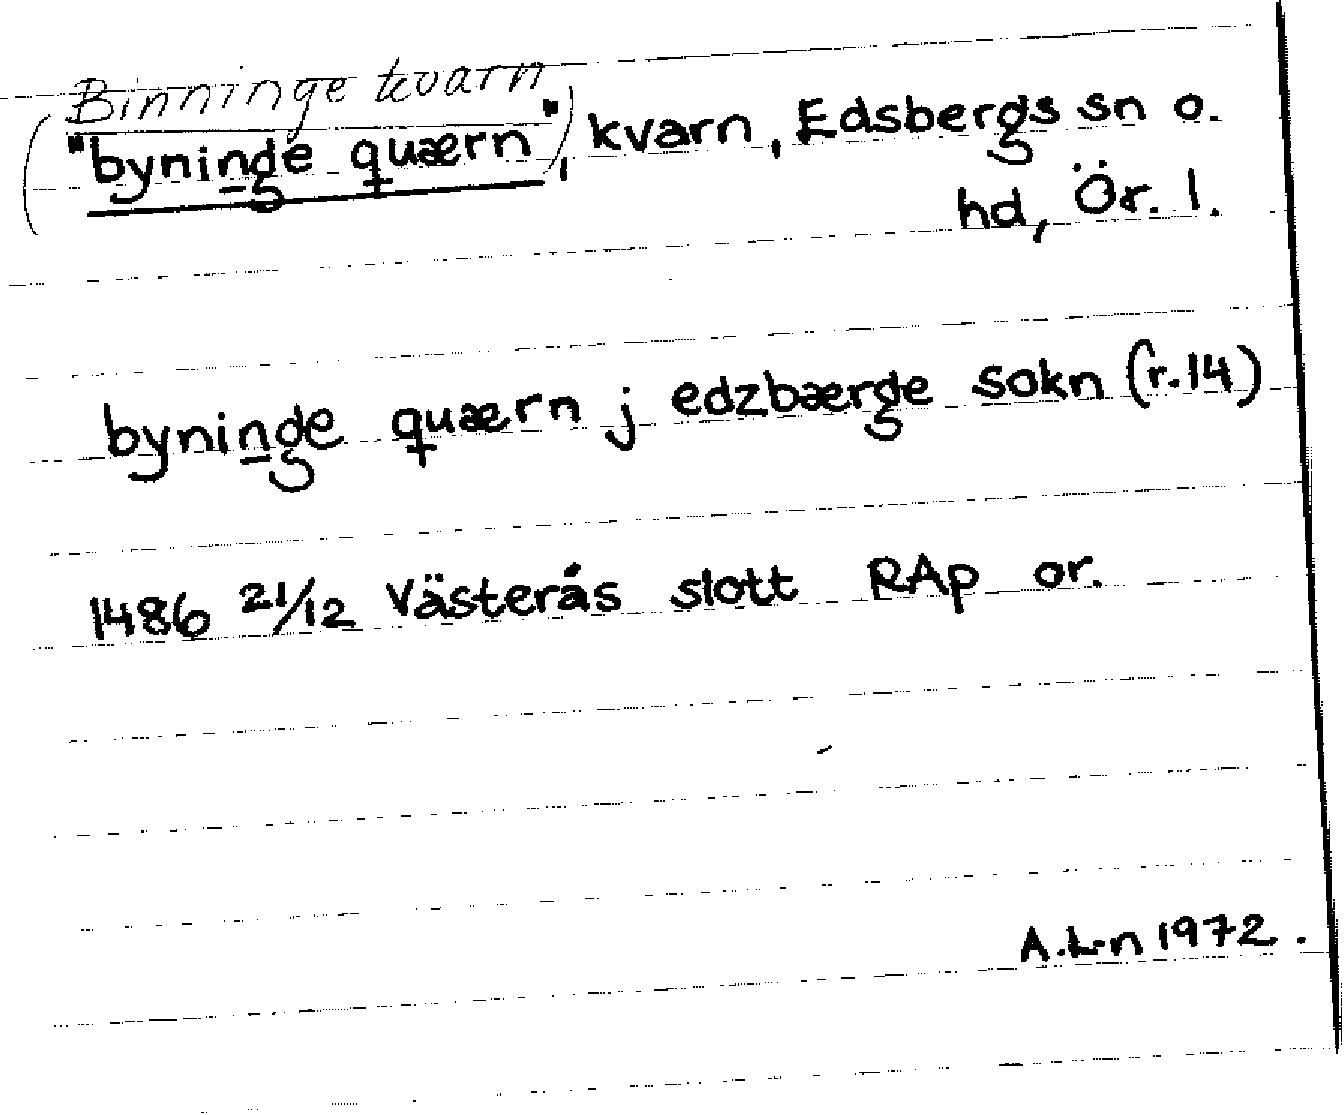 Binninge kvarn
("byninge quærn"), kvarn, Edsbergs sn o.
hd, Ör. l.
byninge quærn j edzbærge sokn (r.14)
1486 21/12 Västerås slott RAp or.
A.L-n 1972.